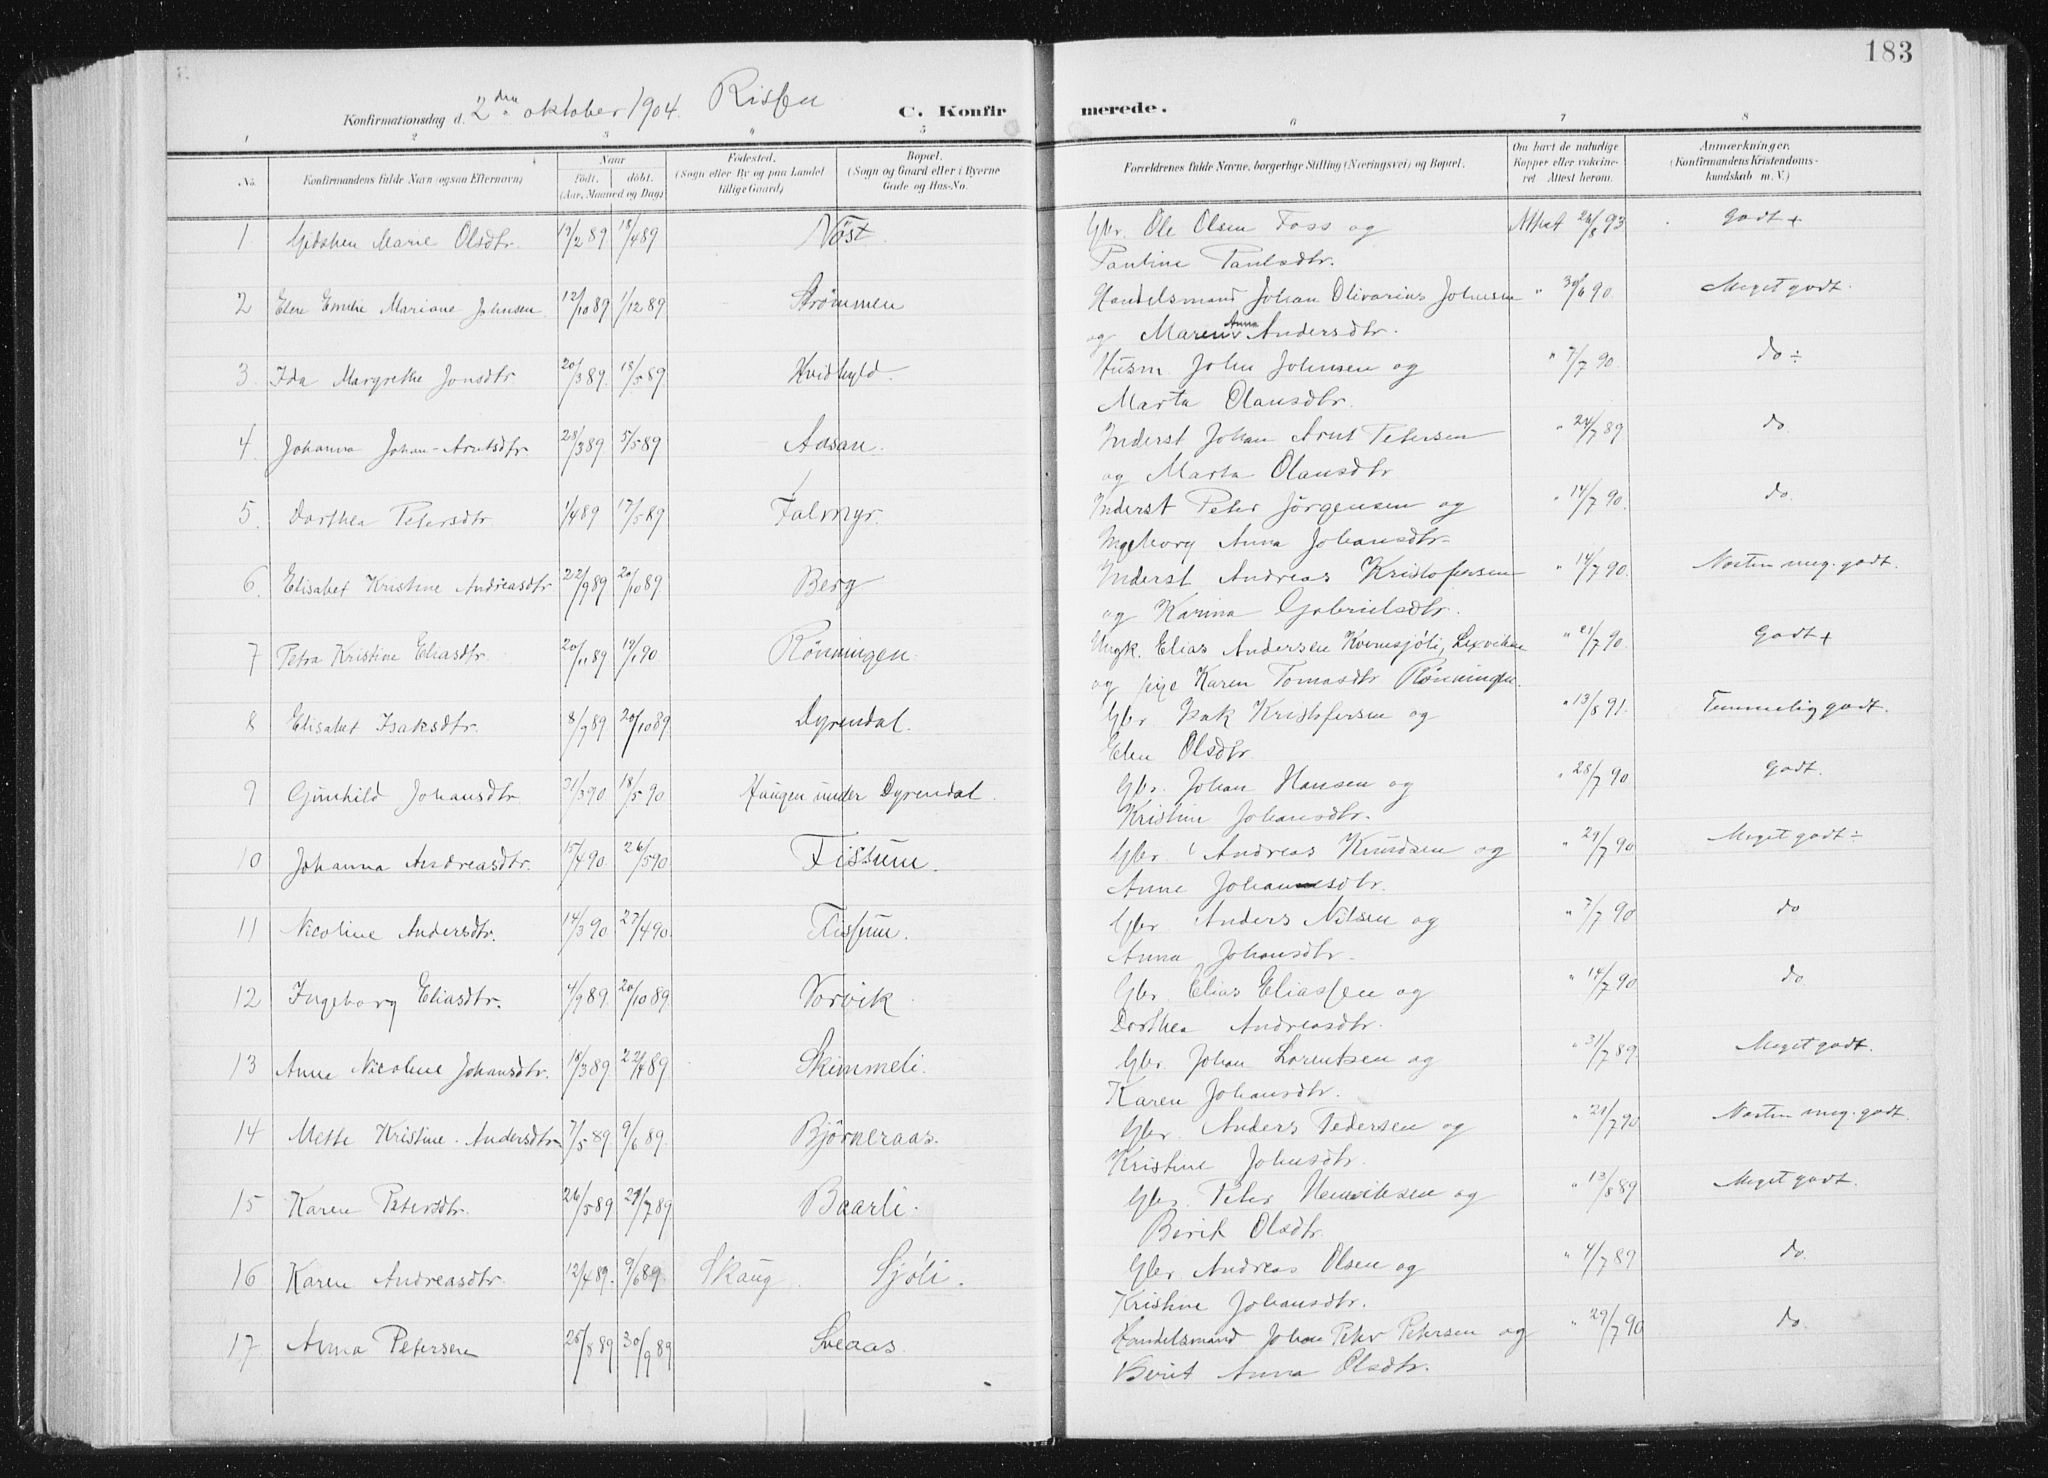 183
Konfirmationsdag d. 2den oktober 1904. Rissen C. Konfirmerede.
1 2 3 4 5 6 7 8
No. Konfirmandens fulde Navn (ogsaa Efternavn) Naar født. døbt. (Aar, Maaned og Dag) Fødested. (Sogn eller By og paa Landet tillige Gaard) Bopæl. (Sogn og Gaard eller i Byerne Gade og Hus-No. Forældrenes fulde Navne, borgerlige Stilling (Næringsvei) og Bopæl. Om havt de naturlige Kopper eller vaccineret. Attest herom. Anmærkninger. (Konfirmandens Kristendomskundskab m. V.)
1. Marie Olsdtr. 19/2 89 18/4 89 Nöst Gbr. Ole Olsen Foss og Attest 26/8 93 godt +
Pauline Paulsdtr.
2 Elen Emelie Mariane Johnsen 12/10 89 1/12 89 Strømmen Handelsmand Johan Olivarius Johnsen " 30/6 90 Meget godt.
og Maren Anna Andersdtr.
3. Ida Margrethe Jonsdtr 20/3 89. 18/5 89 Hvidhyld. Husm. John Johnsen og " 7/7 90 do ÷
Marta Olausdtr.
4. Johanna Johan-Arntsdtr 28/3 89. 5/5 89 Aasan. Inderst Johan Arnt Petersen " 24/7 89 do.
og Marta Olausdtr
5. Dorthea Petersdtr. 1/4 89 17/5 89 Falmyr. Inderst Peter Jörgensen og " 14/7 90. do.
Ingeborg Anna Johansdtr.
6. Elisabet Kristine Andreasdtr 22/9 89 20/10 89 Berg Inderst Andreas Kristofersen " 14/7 90. Næsten meg. godt.
og Karina Gabrielsdtr.
7 Petra Kristine Eliasdtr. 20/11 89 19/1 90. Rönningen. Ungk. Elias Andersen Kvernsjöli, Lexviken " 21/7 90. Godt +
og pige Karen Tomasdtr Rönningen.
8 Elisabet Isaksdtr. 8/9 89 20/10 89 Dyrendal. Gbr. Isak Kristofersen og " 13/8 91. Temmelig godt.
Elen Olsdtr.
9 Gunhild Johansdtr. 31/3 90 18/5 90 Haugen under Dyrendal. Gbr. Johan Hansen og " 28/7 90 Godt.
Kristine Johansdtr.
10 Johanna Andreasdtr. 15/4 90. 26/5 90 Fissum. Gbr. Andreas Knudsen og " 29/7 90 Meget godt ÷
Anne Johannesdtr.
11 Nicoline Andersdtr. 14/3 90. 27/4 90. Fissum. Gbr. Anders Nilsen og " 7/7 90 do
Anna Johansdtr.
12 Ingeborg Eliasdtr. 4/9 89. 20/10 89. Vorvik Gbr. Elias Eliassen og " 14/7 90 do
Dorthea Andreasdtr.
13 Anne Nicoline Johansdtr. 18/3 89. 22/4 89 Skimmeli. Gbr. Johan Lorentsen og " 31/7 89. Meget godt.
Karen Johansdtr.
14 Mette Kristine Andersdtr 7/5 89 9/6 89. Björneraas. Gbr. Anders Pedersen og " 21/7 90 Næsten meg. godt.
Kristine Johnsdtr.
15 Karen Petersdtr. 26/5 89 21/7 89 Baarli. Gbr. Peter Henriksen og " 13/8 89 Meget godt.
Berit Olsdtr.
16 Karen Andreasdtr. 12/4 89. 9/6 89. Skaug. Sjöli. Gbr. Andreas Olsen og " 4/7 89 do.
Kristine Johansdtr.
17 Anna Petersen 25/8 89 30/9 89 Sveaas. Handelsmand Johan Peter Petersen og " 29/7 90 do.
Berit Anna Olsdtr.